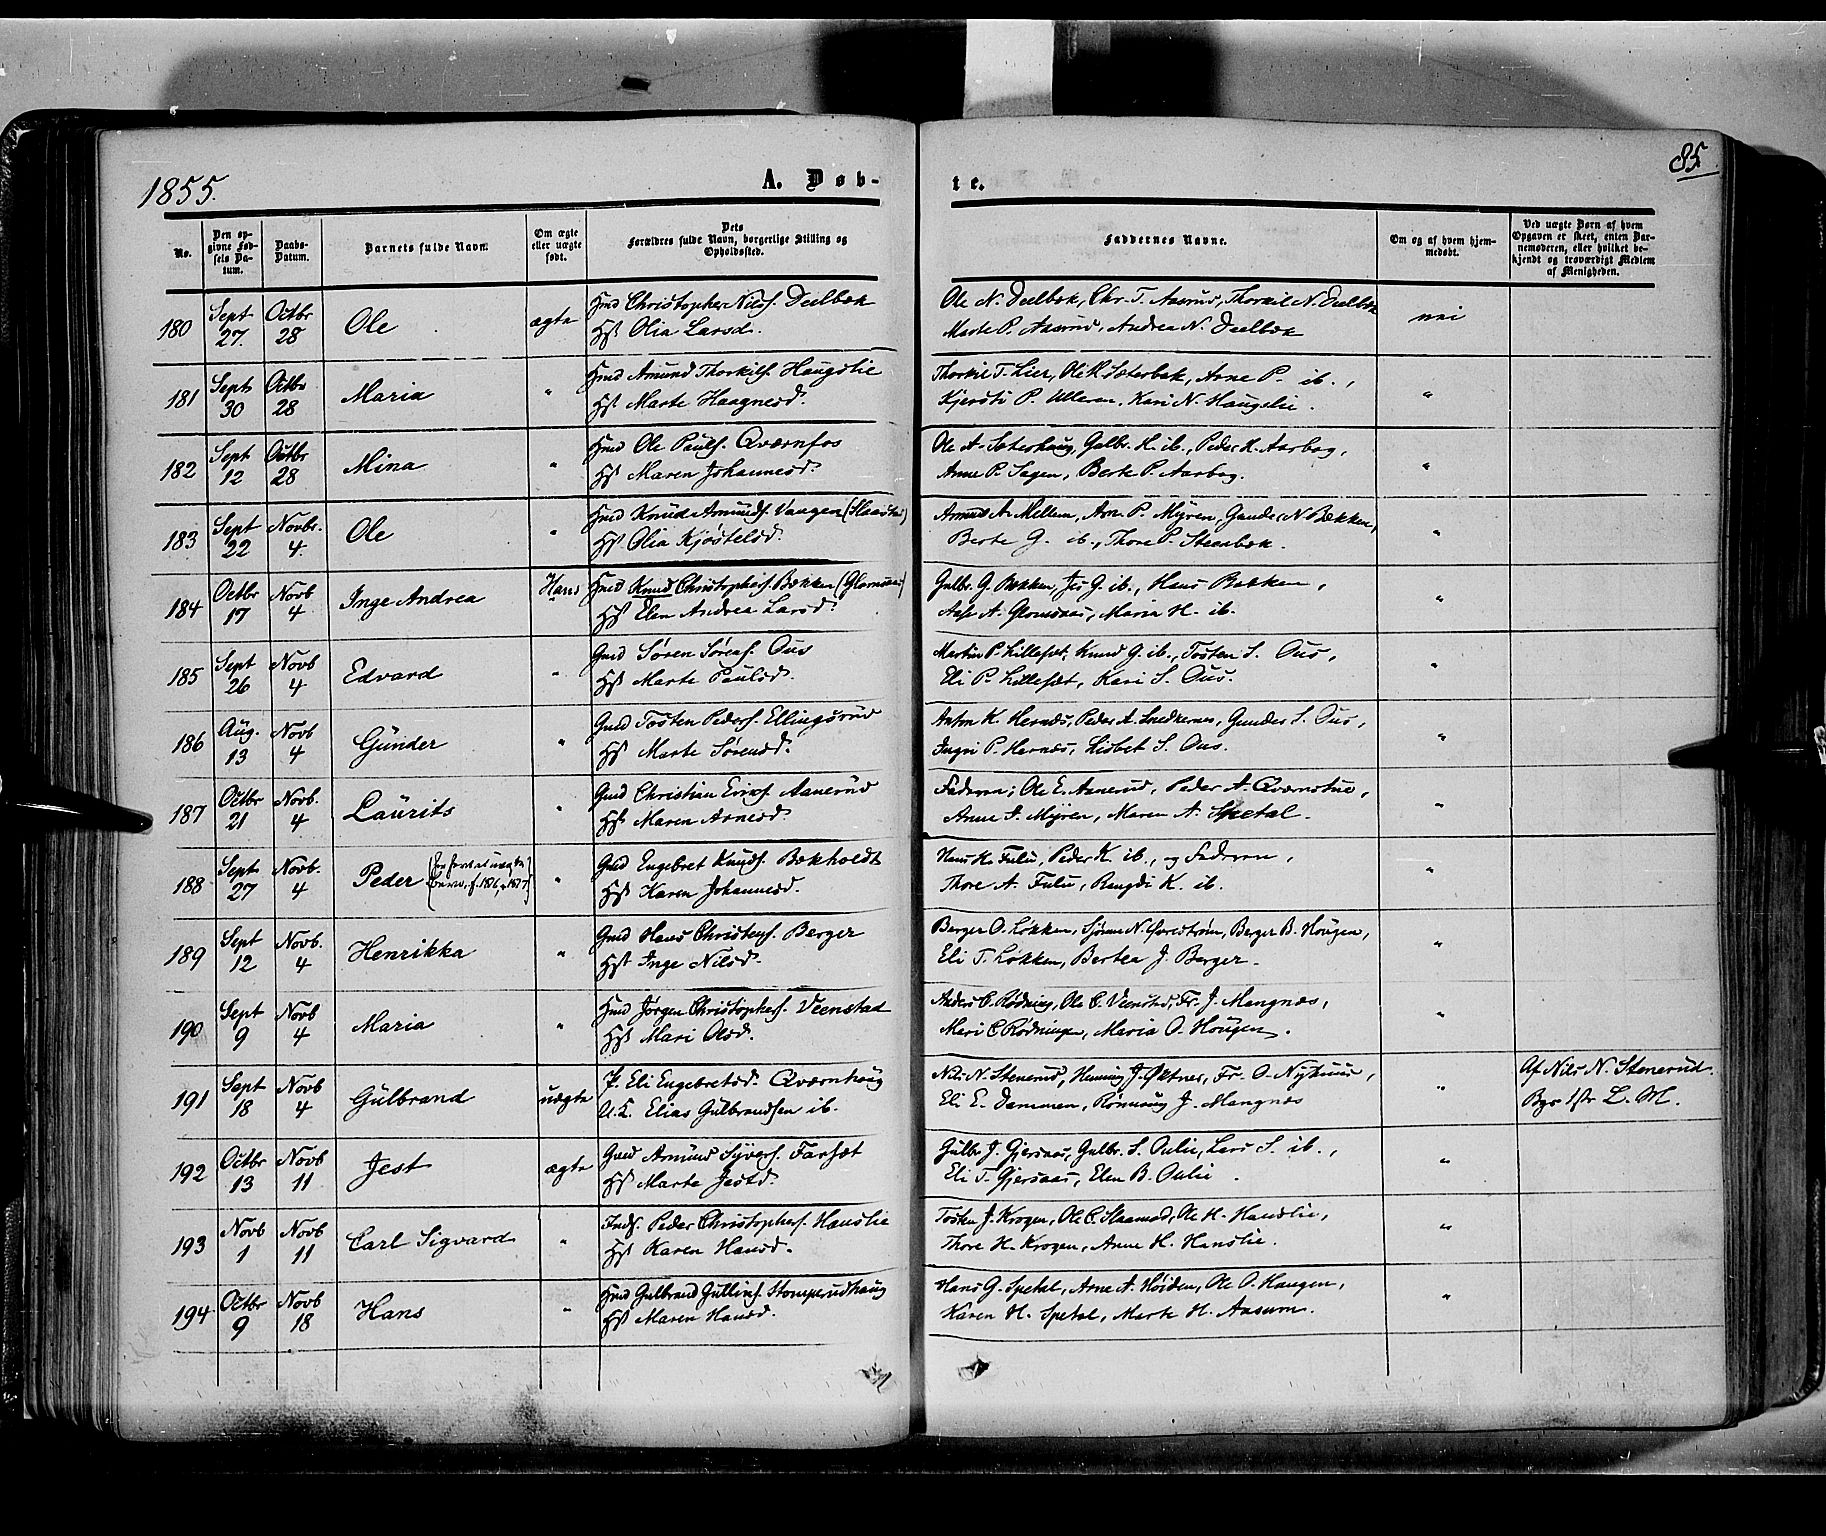 1855.
A. Døb-
te.
85.
No.
Den op-
givne Fød-
sels Da-
tum.
Daabs-
Datum.
Barnets fulde Navn.
Om ægte
eller uægte
født.
Dets
Forældres fulde Navn, borgerlige Stilling og
Opholdssted.
Faddernes Navne.
Om og af hvem hjem-
medøbt.
Ved uægte Børn af hvem
Opgaven er skeet, enten Bar-
nemoderen, eller hvilket be-
kjendt og troværdigt Medlem
af Menigheden.
180 Sept 27. Octbr 28 Ole ægte
Hmd Christopher Nilss. Deelbæk
Hst Olia Larsd.
Ole N. Deelbæk, Chr. T. Aasrud, Thorkil N. Deelbæk
Marte P. Aasrud, Andrea N. Deelbæk
nei
181 Sept 30 Octbr 28 Maria "
Hmd Amund Thorkils. Haugslie
Hst Marte Haagnesd.
Thorkil T. Lier, Ole K. Sæterbak, Arne P. ib.,
Kjersti P. Ulleren, Kari N. Haugslie.
"
182 Sept 12 Octbr 28 Mina "
Hmd Ole Pauls. Qværnfos
Hst Maren Johannesd.
Ole A. Sæterhaug, Gulbr. H. ib., Peder K. Aarbog,
Anne P. Sagen, Berte P. Aarbog.
"
183 Sept 22 Novbr. 4. Ole "
Hmd Knud Amunds. Vangen
Hst Olia Kjøstelsd.
Amund A. Mellem, Arn. P. Myren, Gunder N. Bækken,
Berte G. ib., Thore P. Steenbæk.
"
184 Octbr 17 Novb 4 Inge Andrea Hans
Hmd Knud Christophers. Bækken (Glomsaas)
Hst Elen Andrea Larsd.
Gulbr. G. Bækken, Jes G. ib., Hans Bakken,
Aase A. Glomsaas, Maria H. ib.
"
185 Sept 26 Novb 4 Edvard "
Gmd Søren Sørens. Ous
Hst Marte Paulsd.
Martin P. Lillesæt, Knud G. ib., Tosten S. Ous,
Eli P. Lillesæt, Kari S. Ous.
"
186 Aug. 13 Novb 4 Günder "
Gmd Tosten Peders. Ellingsrud
Hst Marte Sørensd.
Anton K. Hernæs, Peder A. Snedkernes, Gunder S. Ous,
Ingri P. Hernæs, Lisbet S. Ous.
"
187 Octbr 21 Novb. 4 Laurits "
Gmd Christian Eriks. Aanerud
Hst Maren Arnesd.
Faderen; Ole E. Aanerud, Peder A. Qværnstue,
Anne J. Myren, Maren A. Spetal.
"
188 Sept 27 Novb. 4 Peder "
Gmd Engebret Knuds. Bækholdt
Hst Karen Johannesd.
Hans K. Fulu, Peder K. ib., og Faderen,
Thore A. Fulu, Rangdi K. ib.
"
189 Sept 12 Novb. 4 Henrikka "
Gmd Hans Christens. Berger
Hst Inge Nilsd.
Berger O. Løkken, Berger B. Hougen,
Eli T. Løkken, Bertea J. Berger.
"
190 Sept 9 Novb 4 Maria "
Hmd Jørgen Christophers. Veenstad
Hst Mari Olsd.
Anders C. Rødning, Ole C. Veensted, Fr. J. Mangnæs,
Mari C. Rødningen, Maria O. Hougen.
"
191 Sept 18 Novb 4 Gülbrand uægte
P. Eli Engebretsd. Qværnhaug
U.K. Elias Gulbrandsen ib.
Nils N. Stenerud, Henning J. Øktner, Fr. O. Nyhuus,
Eli E. Dammen, Rønnaug J. Mangnæs
"
Af Nils N. Stenerud.
L. M.
192 Octbr 13 Novb 11 Jest ægte
Gmd Amund Syvers. Farsæt
Hst Marte Jestd.
Gulbr. J. Gjersaas, Gulbr. S. Oulie, Lars S. ib.,
Eli T. Gjersaas, Elen B. Oulie.
"
193 Novb 1 Novb 11 Carl Sigvard "
Inds. Peder Christophers. Hanslie
Hst Karen Hansd.
Tosten J. Krogen, Ole C. Slaamod, Ole H. Handlie,
Thore H. Krogen, Anne H. Hanslie.
"
194 Octbr 9 Novb 18 Hans "
Hmd Gulbrand Gullins. Stomperudhaug
Hst Maren Hansd.
Hans G. Spetal, Arne A. Høiden, Ole O. Haugen,
Karen H. Spetal, Marte H. Aasum.
"